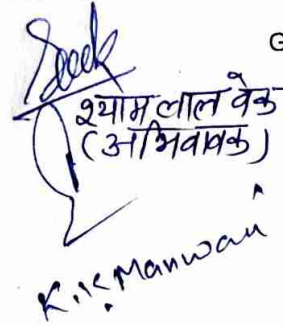 G
श्याम लाल वेक
(अभिवावक)
K.K. Manwani